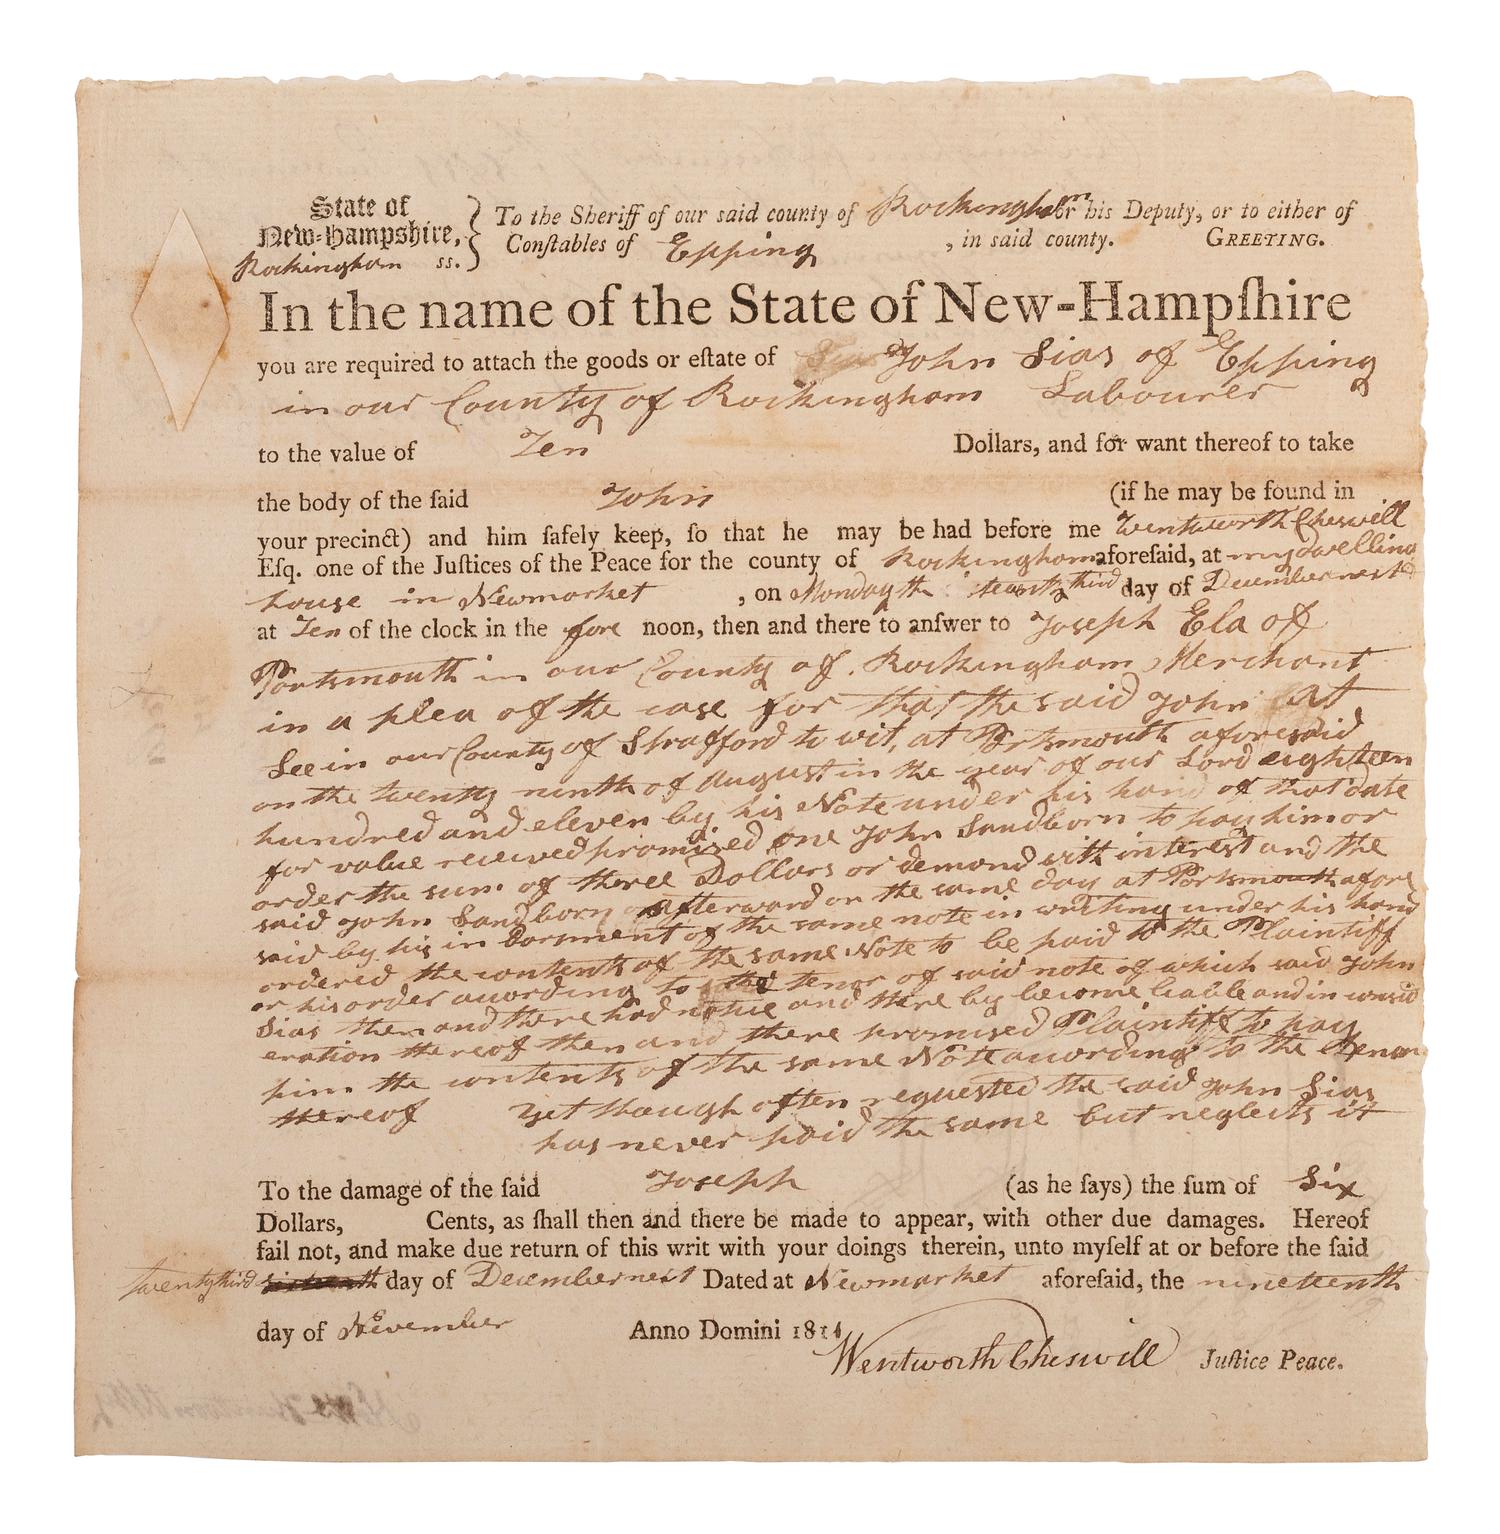 State of
New-Hampshire,
Rockingham ss.
To the Sheriff of our said county of Rockingham or his Deputy, or to either of
Conſtables of Epping , in said county. GREETING.
In the name of the State of New-Hampſhire
you are required to attach the goods or eſtate of John Sias of Epping
in our County of Rockingham Labourer
to the value of Ten Dollars, and for want thereof to take
the body of the ſaid John (if he may be found in
your precinct) and him ſafely keep, ſo that he may be had before me Wentworth Cheswill
Eſq. one of the Juſtices of the Peace for the county of Rockingham aforeſaid, at my dwelling
house in Newmarket , on Monday the third day of December next
at Ten of the clock in the fore noon, then and there to anſwer to Joseph Ela of
Portsmouth in our County of Rockingham Merchant
in a plea of the case for that the said John at
Lee in our County of Strafford to wit, at Portsmouth aforesaid
on the twenty ninth of August in the year of our Lord eighteen
hundred and eleven by his Note under his hand of that date
for value received promised one John Sandborn to pay him or
order the sum of three Dollars on demand with interest and the
said John Sandborn afterward on the same day at Portsmouth afore
said by his in Dorsment of the same note in writing under his hand
ordered the contents of the same Note to be paid to the Plaintiff
or his order according to the tenor of said note of which said John
Sias then and there had notice and there by become liable and in consid
eration thereof then and there promised Plaintiff to pay
him the contents of the same Note according to the tenor
thereof Yet though often requested the said John Sias
has never paid the same but neglects it
To the damage of the ſaid Joseph (as he ſays) the ſum of Six
Dollars, Cents, as ſhall then and there be made to appear, with other due damages. Hereof
fail not, and make due return of this writ with your doings therein, unto myſelf at or before the ſaid
twenty third day of December next Dated at Newmarket aforeſaid, the nineteenth
day of November Anno Domini 1811
Wentworth Cheswill Juſtice Peace.